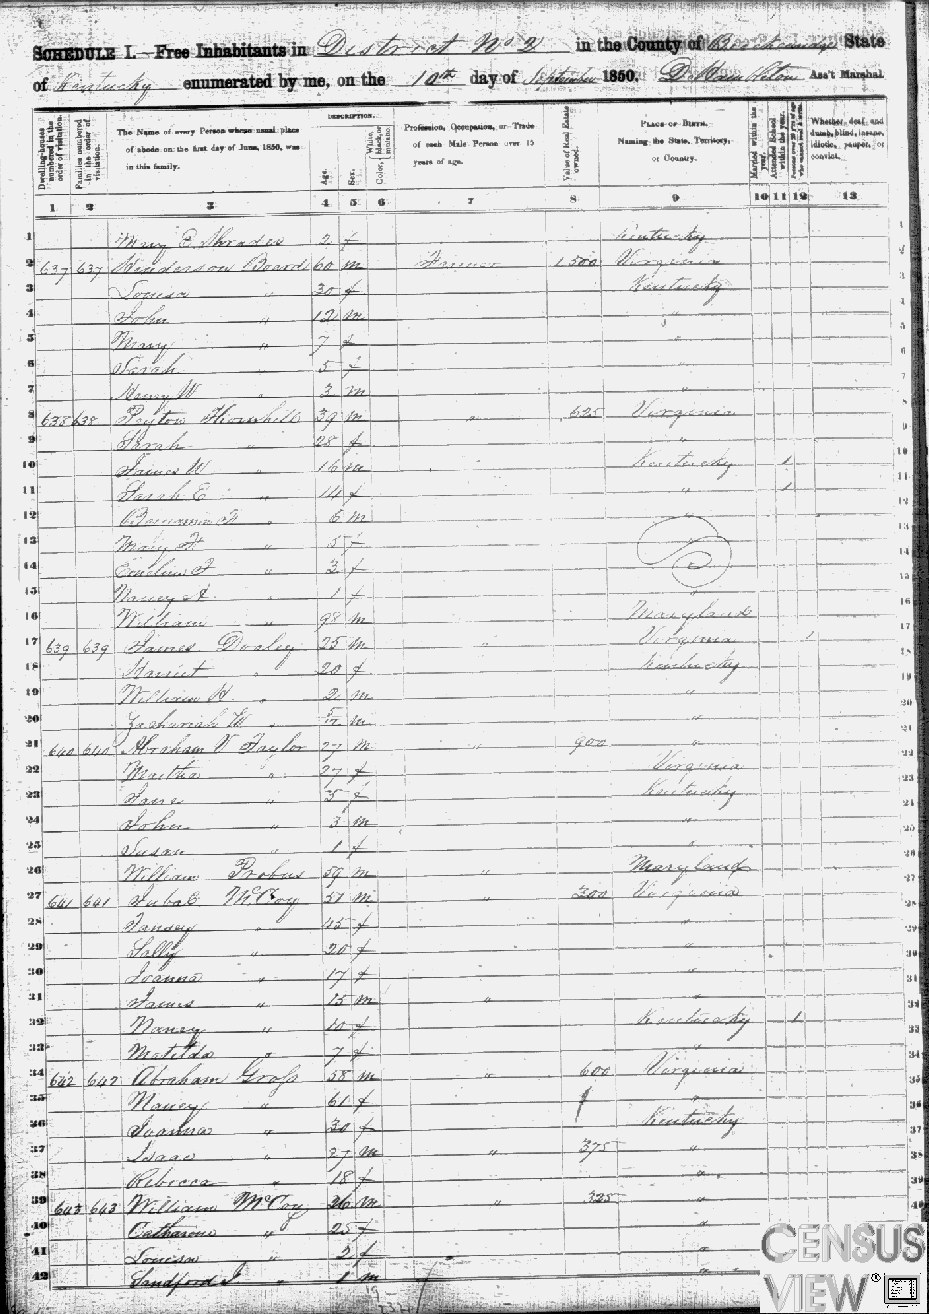 SCHEDULE I.—Free Inhabitants in District No 2 in the County of Breckenridge State
of Kentucky enumerated by me, on the 10th day of September 1850. Ass't Marshal
Dwelling-houses numbered in the order of visitation.
Families numbered in the order of visitation.
The Name of every Person whose usual place of abode on the first day of June, 1850, was in this family.
DESCRIPTION.
Age.
Sex.
Color, White, black, or mulatto.
Profession, Occupation, or Trade of each Male Person over 15 years of age.
Value of Real Estate owned.
PLACE OF BIRTH. Naming the State, Territory, or Country.
Married within the year.
Attended School within the year.
Persons over 20 y'rs of age who cannot read & write.
Whether deaf and dumb, blind, insane, idiotic, pauper, or convict.
1 2 3 4 5 6 7 8 9 10 11 12 13
1 Mary E Shrader 2 f Kentucky
2 637 637 Henderson Boards 60 m Farmer 1500 Virginia
3 Louisa " 30 f Kentucky
4 John " 12 m "
5 Mary " 7 f "
6 Sarah " 5 f "
7 Henry W " 3 m "
8 638 638 Peyton Thornhill 39 m " 625 Virginia
9 Sarah " 28 f "
10 James W " 16 m " Kentucky 1
11 Sarah E " 14 f " 1
12 Benjamin F " 6 m "
13 Mary F " 5 f
14 " 3 f
15 Nancy A " 1 f "
16 William " 98 m Maryland
17 639 639 James Dooley 25 m " Virginia 1
18 Harriet " 20 f Kentucky
19 William H " 2 m "
20 Zachariah W " m "
21 640 640 Abraham V Taylor 27 m " 900 "
22 Martha " 27 f Virginia
23 Jane " 5 f Kentucky
24 John " 3 m "
25 Susan " 1 f "
26 William Probus 59 m " Maryland
27 641 641 McCoy 51 m " 300 Virginia
28 " 45 f "
29 Sally " 20 f "
30 Joanna " 17 f "
31 James " 15 m " "
32 Nancy " 10 f Kentucky 1
33 Matilda " 7 f "
34 642 642 Abraham Gross 58 m " 600 Virginia
35 Nancy " 61 f "
36 Joanna " 30 f Kentucky
37 Isaac " 27 m " 375 "
38 Rebecca " 18 f "
39 643 643 William McCoy 26 m " 325 "
40 Catharine " 25 f "
41 Louisa " 2 f "
42 Sandford J " 1 m "
CENSUS
VIEW®